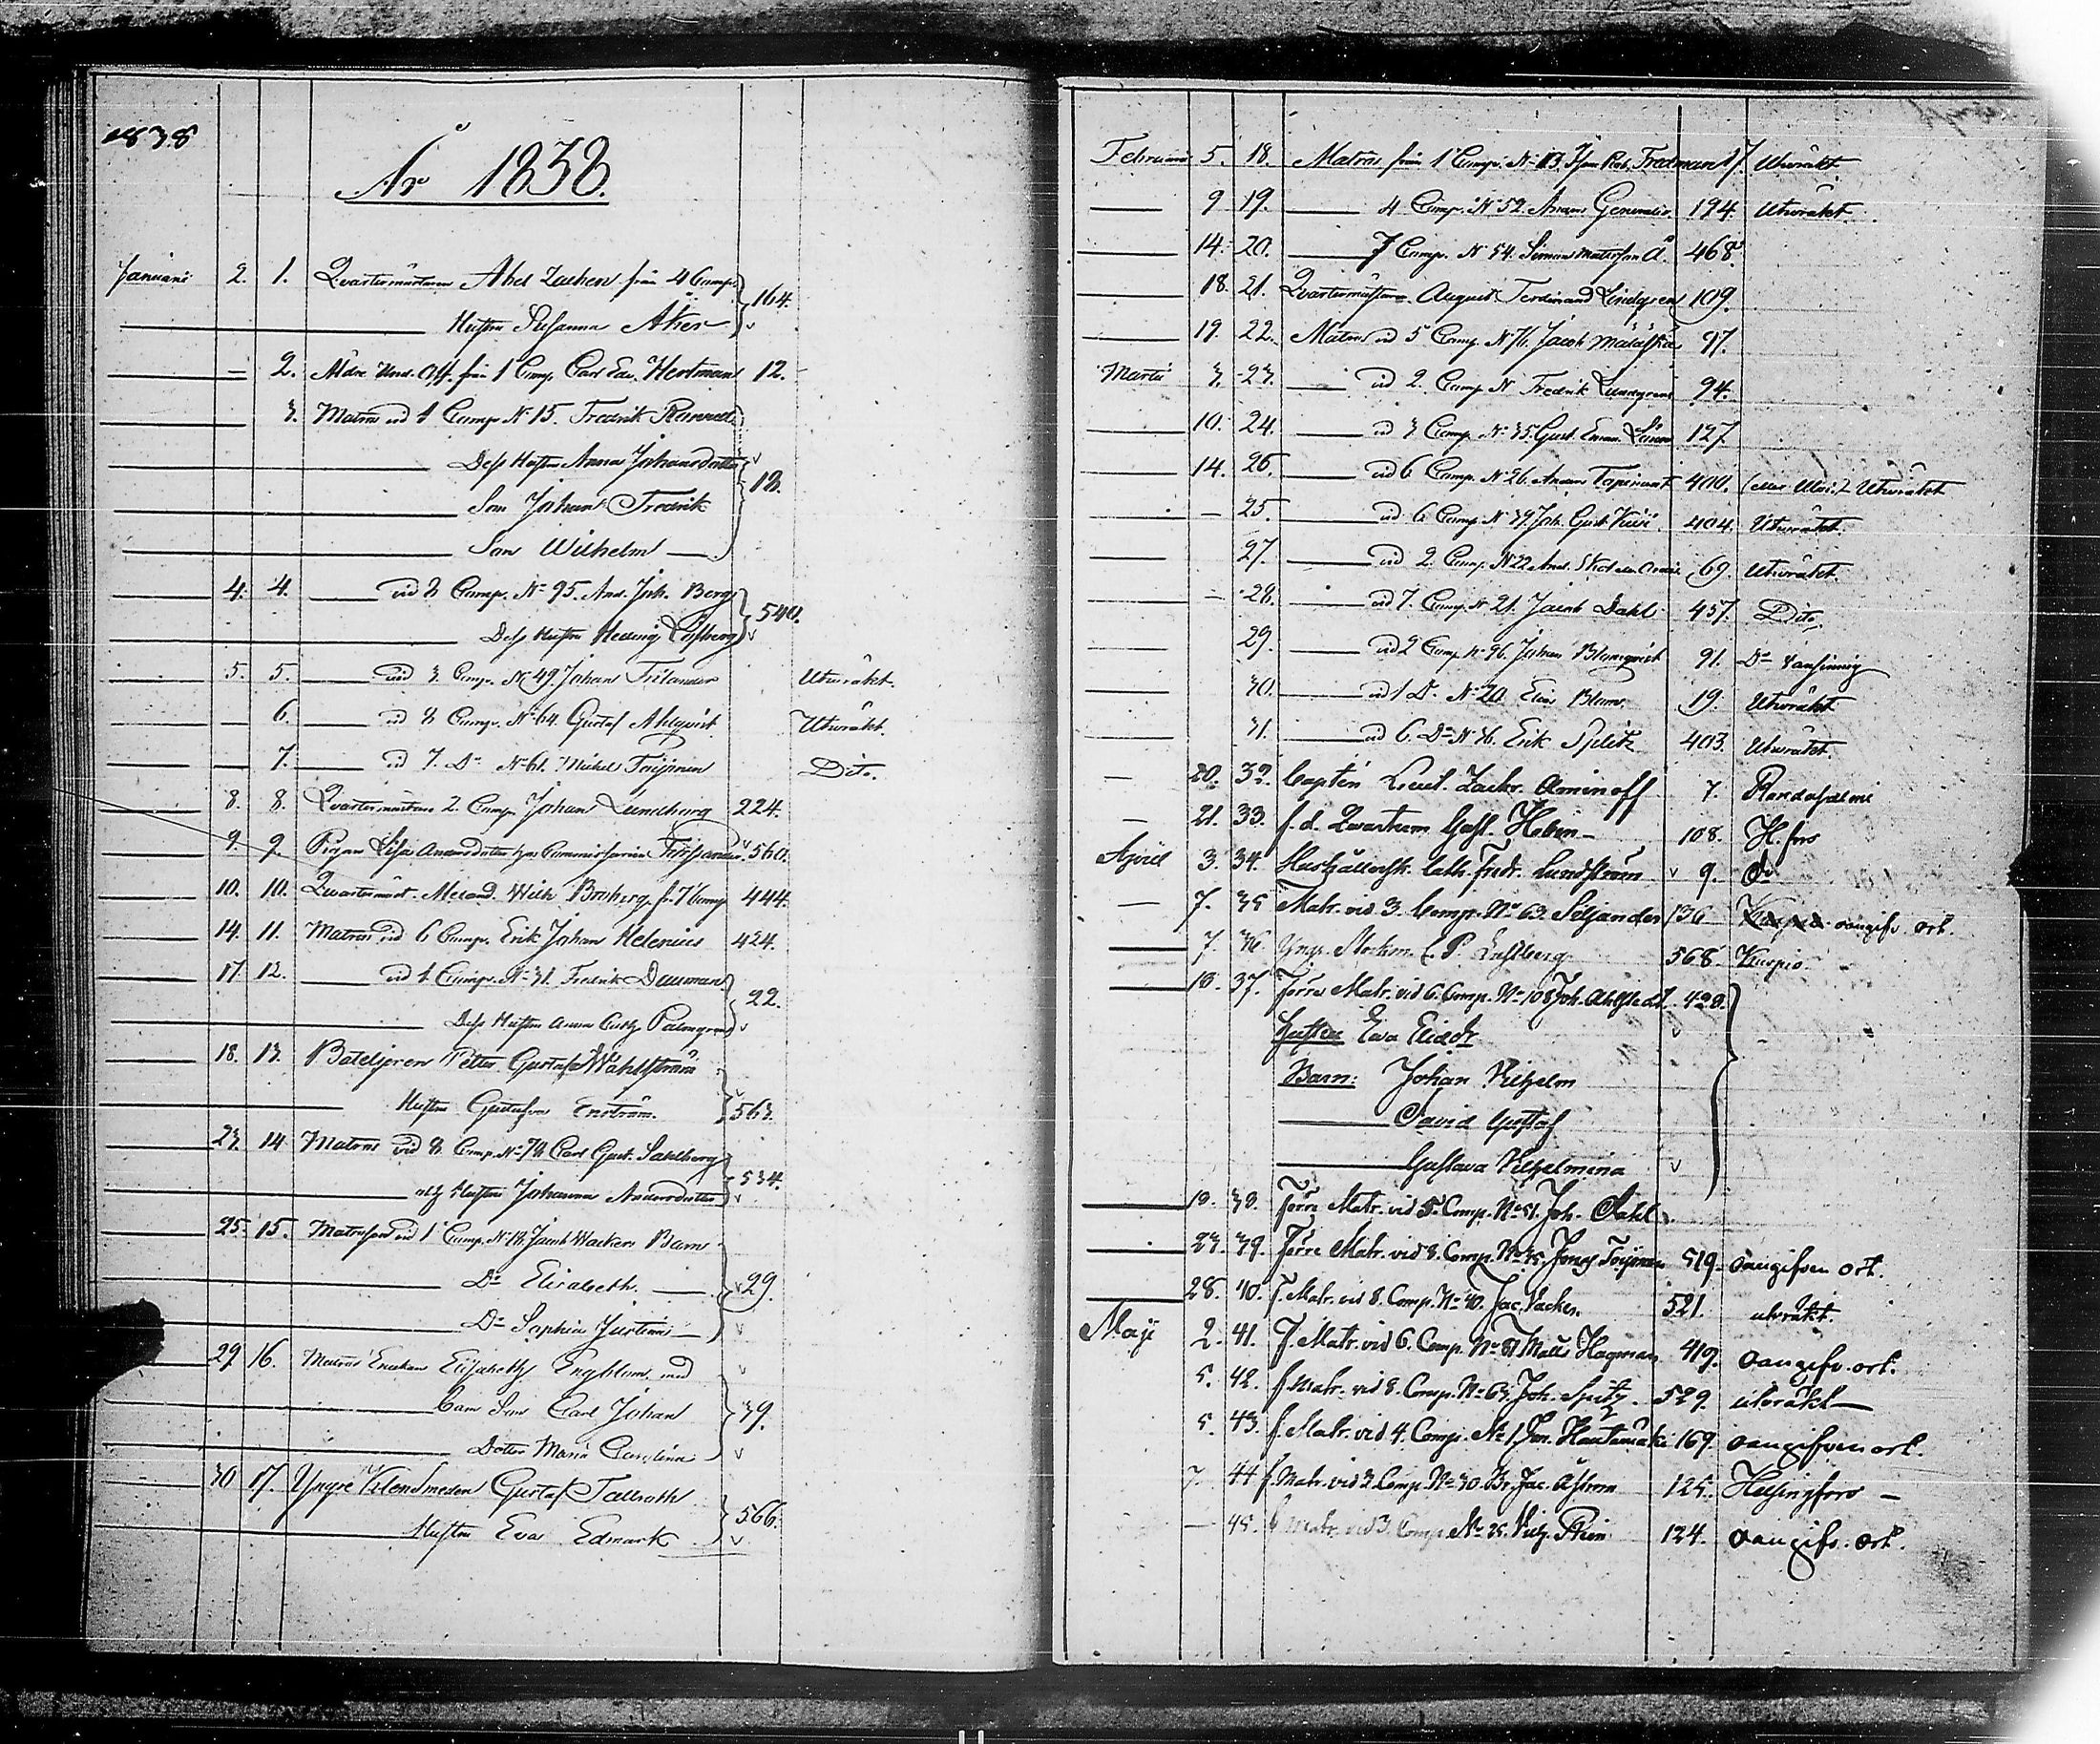 1838
År 1838.
Januari 2. 1. Qvartermästaren Abel Zachen från 4 Comp. 164.
Hustru Susanna Åker
2. Äldre Und. Off. från 1 Comp. Carl Edv. Hertman 12.
3. Matros vid 1 Comp. No 15. Fredrik
Dess Hustru Anna Johansdotter 18.
Son Johan Fredrik
Son Wilhelm
4. 4. vid 8 Comp. No 95. And. Joh. Berg 540.
Dess Hustru Hedvig Löfberg
5. 5. vid 3 Comp. No 49. Johan Utwräkt.
6. vid 8 Comp. No 64. Gustaf Ahlqvist Utwräkt.
7. vid 7. Do No 61. Mickel Toijonen Dito.
8. 8. Qvartermästare 2. Comp. Johan Lundborg 224.
9. 9. Pigan Lisa Andersdotter 560.
10. 10. Qvartermäst. Wilh. Broberg fr. 7 Comp 444.
14. 11. Matros vid 6 Comp. Erik Johan Helenius 424.
17. 12. vid 1 Comp. No 31. Fredrik Dauman 22.
Dess Hustru Anna Palmgren
18. 13. Petter Gustaf Wahlström
Hustru Gustafva Enström. 563.
23. 14. Matros vid 8. Comp. No 78 Carl Gust. Sahlberg 534.
Hustru Johanna Andersdotter
25. 15. vid 1 Comp. No 18. Jacob Wackers Barn
Do Elisabeth 29.
Do Sophia Justina
29 16. Matros Enckan Elisabeth Engblom med
Barn Son Carl Johan 39.
Dotter Maria Carolina
30 17. Yngre Gustaf Tallroth 566.
Hustru Eva Edmark
Februari 5. 18. Matros från 1 Comp. No 13. Fredman 17. Utwräkt.
9 19. 4 Comp. No 52. 194. Utwräkt.
14. 20. 7 Comp. No 54. Simon Mattsson Å. 468.
18. 21. Qvartermästare August Ferdinand Lindgren 109.
19. 22. Matros vid 5 Comp. No 76. Jacob 97.
Martii 3. 23. vid 2. Comp. No Fredrik Lundgren 94.
10. 24. vid 3 Comp. No 35. Gust. Eman. 127.
14. 26. vid 6 Comp. No 26. Anders 400. Utwräkt
25. vid 6 Comp. No 39. Joh. Gust. 404. Utwräkt.
27. vid 2. Comp. No 22 And. 69. Utwräkt.
28. vid 7. Comp. No 21. Jacob Dahl 457. Dito.
29. vid 2 Comp. No 96. Johan Blomqvist 91. Do vansinnig
30. vid 1 Do No 20. Elias Blom. 19. Utwräkt
31. vid 6. Do No 36. Erik Splitz 403. Utwräkt.
20. 32. Captén Lieut. Zachr. Aminoff 7. Randasalmi
21. 33. f.d. Qvarterm. Gust. Holm 108. H.fors
April 3. 34. Hushållersk. Cath. Fredr. Lundström 9. Do
7. 35 Matr. vid 3. Comp. No 63. Siljander 136 oangifv. ort.
7. 36. Yngr. C. P. 568. Kuopio.
10. 37. Förra Matr. vid 6. Comp. No 108 Joh. Ahlstedt 428.
Hustru Eva Eliædr
Barn: Johan Vilhelm
David Gustaf
Gustava Vilhelmina
10. 38. Förra Matr. vid 5. Comp. No 51. Joh. Dahl
23. 39. Förre Matr. vid 8. Comp. No 35. Jonas Toijonen 519. oangifven ort.
28. 40. f. Matr. vid 8. Comp. No 40. Jac. Vacker. 521. utvräkt.
Maji 2. 41. f. Matr. vid 6. Comp. No 81 Matts Hagman 419. oangifv. ort.
5. 42. f. Matr. vid 8. Comp. No 63. Joh. Spitz 529. utvräkt
5. 43. f. Matr. vid 4. Comp. No 1. Joh. Hautamäki 169. oangifven ort.
7. 44 f. Matr. vid 3. Comp. No 30. Br. Jac. Åström 125. Helsingfors
45. f. Matr. vid 3. Comp. No 25. Vilh. 124. oangifv. ort.